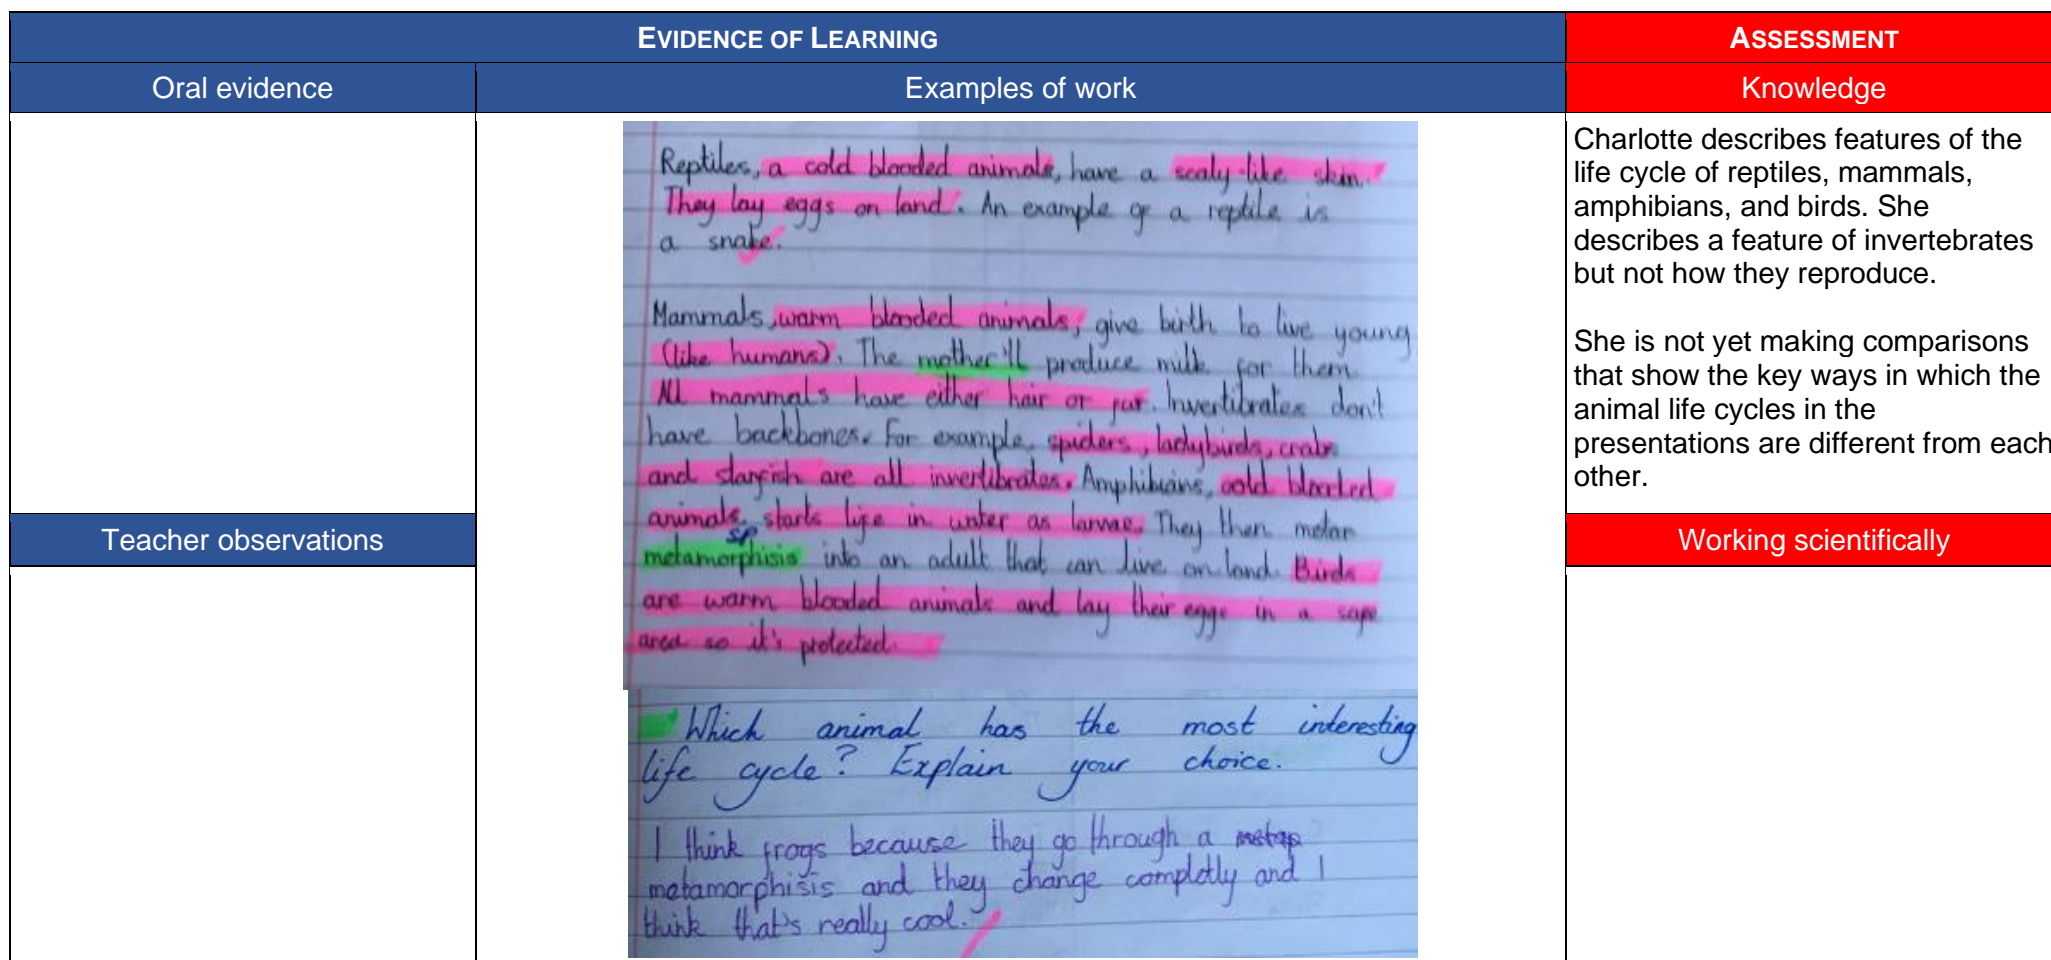 EVIDENCE OF LEARNING
ASSESSMENT
Oral evidence
Examples of work
Knowledge
Reptiles, a cold blooded animals, have a scaly-like skin.
They lay eggs on land. An example of a reptile is
a snake.
Mammals, warm blooded animals, give birth to live young
(like humans). The mother'll produce milk for them.
All mammals have either hair or fur. Invertibrates don't
have backbones. For example, spiders, ladybirds, crabs
and starfish are all invertibrates. Amphibians, cold blooded
animals, starts life in water as larvae. They then metam
sp
metamorphisis into an adult that can live on land. Birds
are warm blooded animals and lay their eggs in a safe
area so it's protected.
Which animal has the most interesting
life cycle? Explain your choice.
I think frogs because they go through a
metamorphisis and they change completly and I
think that's really cool.
Charlotte describes features of the
life cycle of reptiles, mammals,
amphibians, and birds. She
describes a feature of invertebrates
but not how they reproduce.
She is not yet making comparisons
that show the key ways in which the
animal life cycles in the
presentations are different from each
other.
Teacher observations
Working scientifically